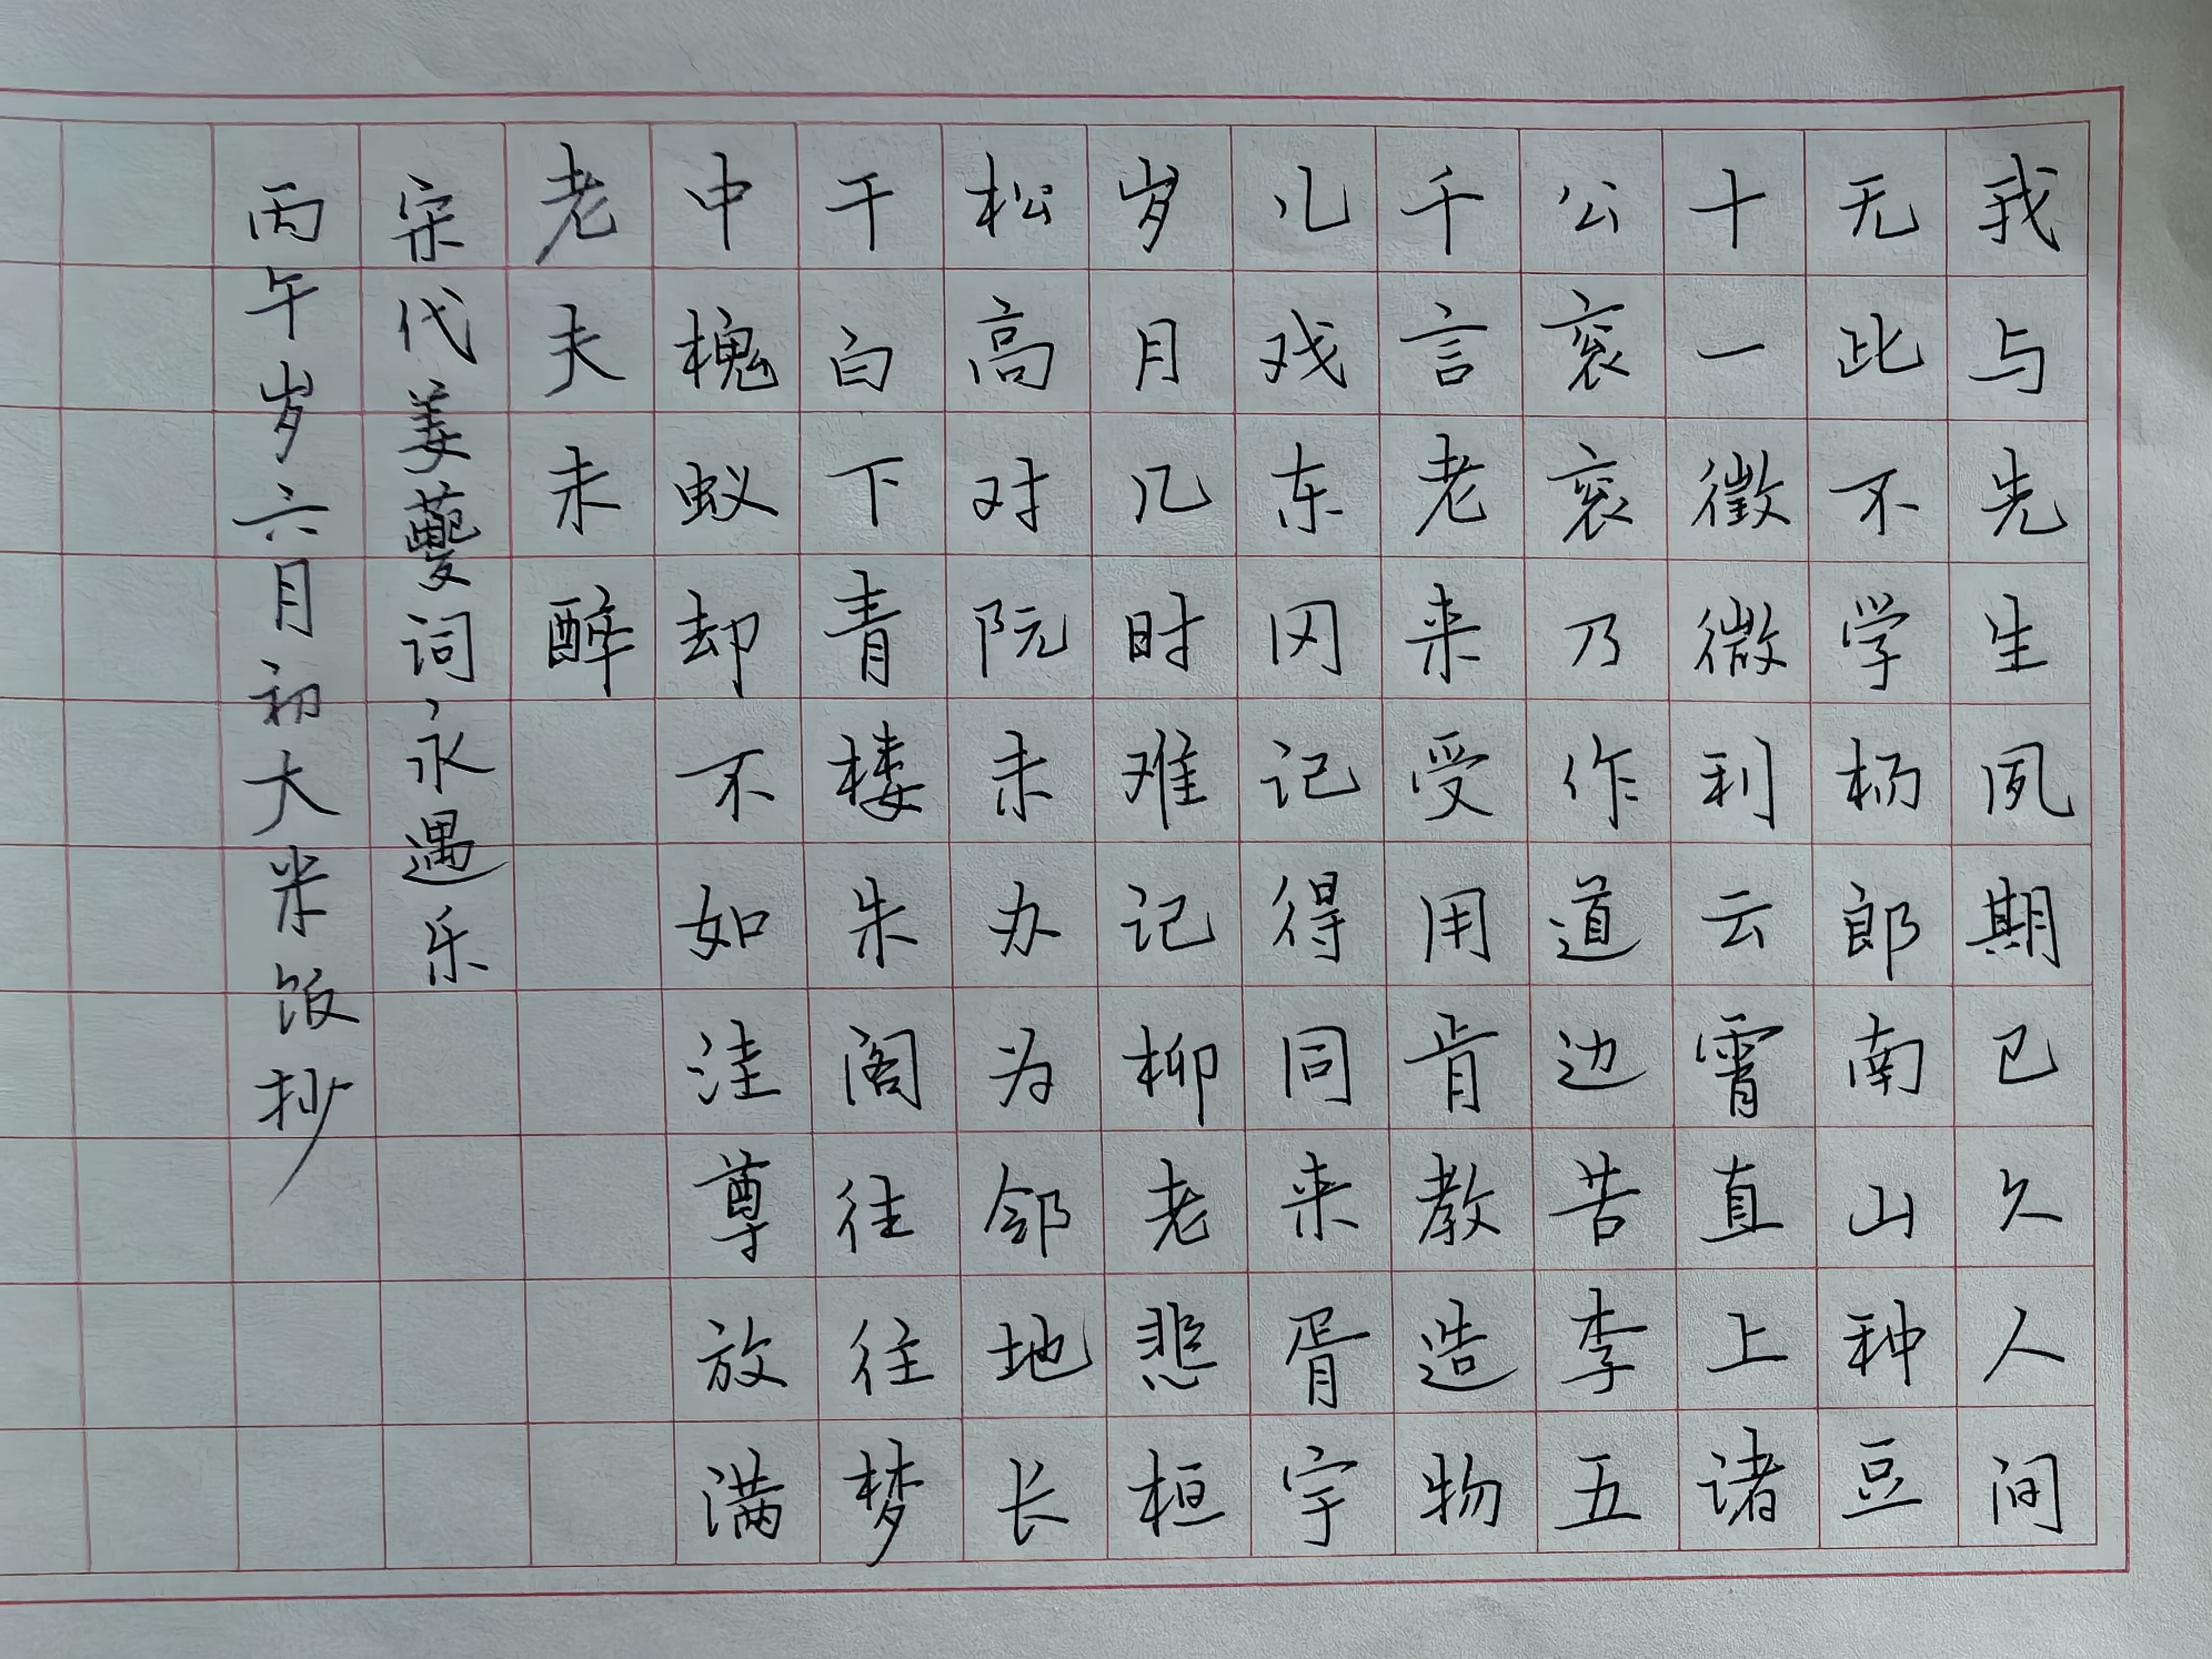 我与先生夙期已久人间
无此不学杨郎南山种豆
十一徵微利云霄直上诸
公衮衮乃作道边苦李五
千言老来受用肯教造物
儿戏东冈记得同来胥宇
岁月几时难记柳老悲桓
松高对阮未办为邻地长
干白下青楼朱阁往往梦
中槐蚁却不如洼尊放满
老夫未醉
宋代姜夔词、永遇乐
丙午岁六月初大米饭抄